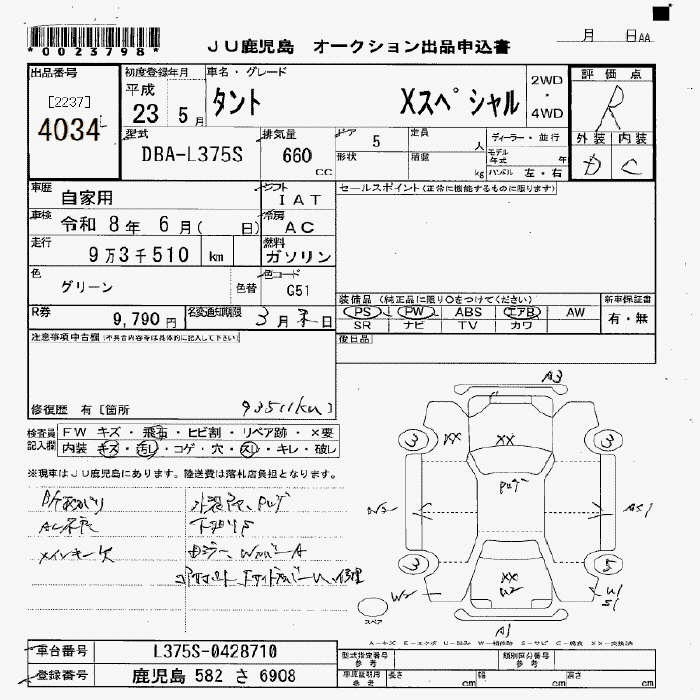 *0023798*
JU鹿児島 オークション出品申込書
月 日 AA
出品番号
[2237]
4034
初度登録年月
平成
23 5月
車名・グレード
タント Xスペシャル
2WD
・
4WD
評価点
R
外装 内装
D C
型式
DBA-L375S
排気量
660 CC
ドア 5
定員 人
形状
積載 kg
ディーラー・並行
モデル年式 年
ハンドル 左・右
車歴 自家用
シフト IAT
車検 令和 8年 6月( 日)
冷房 AC
走行 9万3千510 km
燃料 ガソリン
色 グリーン
色替
色コード G51
セールスポイント(正常に機能するものに限ります)
R券 9,790円
名変通知期限 3月末日
装備品(純正品に限り○をつけてください)
PS PW ABS エアB AW
SR ナビ TV カワ
新車保証書
有・無
後日品
注意事項申告欄(不具合内容等は具体的に記入して下さい)
修復歴 有[箇所
93511km]
検査員記入欄
FW キズ・飛石・ヒビ割・リペア跡・×要
内装 キズ・汚レ・コゲ・穴・スレ・キレ・破レ
※現車はJU鹿児島にあります。陸送費は落札店負担となります。
メインキー欠
下廻りS
A3
3 XX XX 3
XX
W2
3 3
A1
スペア
車台番号 L375S-0428710
登録番号 鹿児島 582 さ 6908
型式指定番号 参考
類別区分番号 参考
車庫証明用 参考
長さ cm 幅 cm 高さ cm